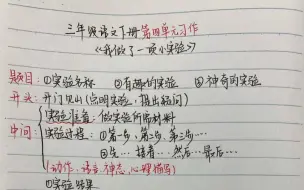 三年级语文下册第四单元习作
《我做了一项小实验》
题目：①实验名称 ②有趣的实验 ③神奇的实验
开头：开门见山（点明实验，提出疑问）
实验准备：做实验所需材料
中间：实验过程：①第一步，第二步，第三步…
②先…接着…然后…最后…
（动作、语言、神态、心理描写）
①实验结果